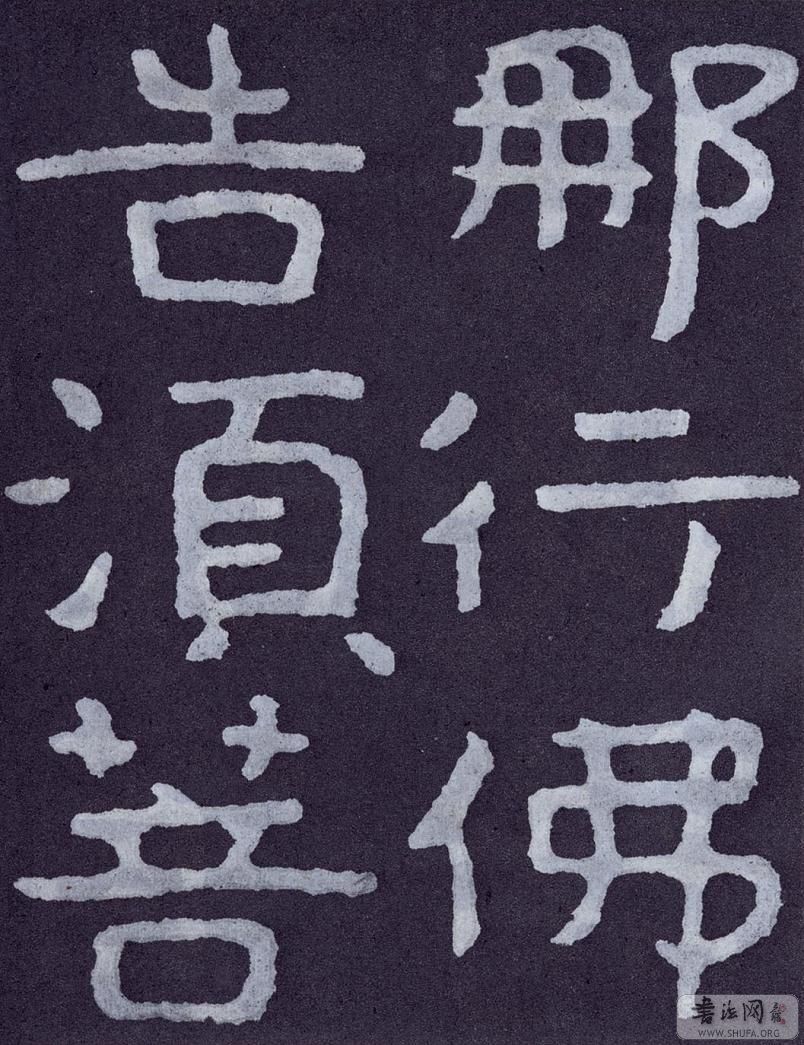 那行佛
告湏菩
書法网
WWW.SHUFA.ORG